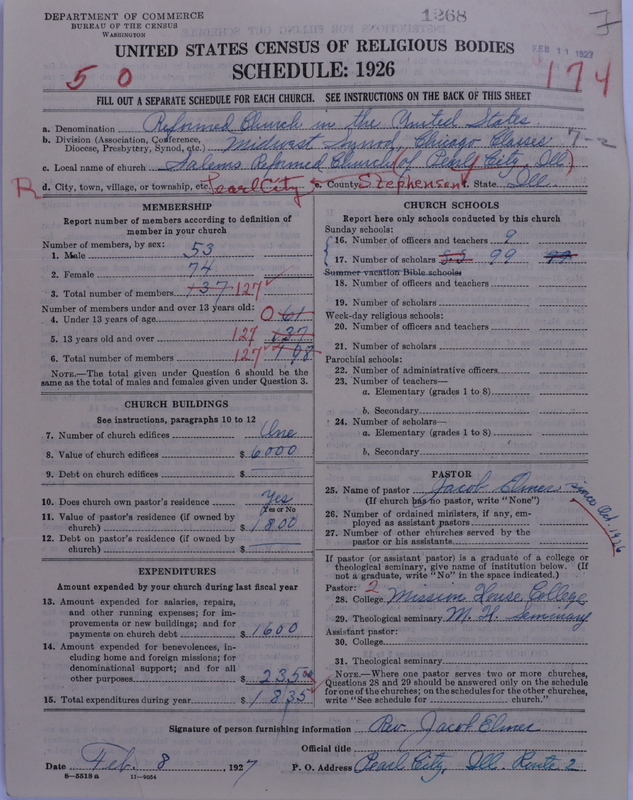 DEPARTMENT OF COMMERCE
BUREAU OF THE CENSUS
WASHINGTON
1268
FEB 11 1927
UNITED STATES CENSUS OF RELIGIOUS BODIES
SCHEDULE: 1926
50
174
FILL OUT A SEPARATE SCHEDULE FOR EACH CHURCH. SEE INSTRUCTIONS ON THE BACK OF THIS SHEET
a. Denomination Reformed Church in the United States
b. Division (Association, Conference, Diocese, Presbytery, Synod, etc.) Midwest Synod, Chicago Classes 7-2
c. Local name of church Salems Reformed Church (of Pearl City, Ill)
R d. City, town, village, or township, etc. Pearl City e. County Stephenson f. State Ill.
MEMBERSHIP
Report number of members according to definition of
member in your church
Number of members, by sex:
1. Male 53
2. Female 74
3. Total number of members 137 127
Number of members under and over 13 years old:
4. Under 13 years of age 0 61
5. 13 years old and over 127 137
6. Total number of members 127 198
NOTE.—The total given under Question 6 should be
same as the total of males and females given under Question 3.
CHURCH BUILDINGS
See instructions, paragraphs 10 to 12
7. Number of church edifices One
8. Value of church edifices $ 6000
9. Debt on church edifices $
10. Does church own pastor's residence Yes
Yes or No
11. Value of pastor's residence (if owned by
church) $ 1800
12. Debt on pastor's residence (if owned by
church) $
EXPENDITURES
Amount expended by your church during last fiscal year
13. Amount expended for salaries, repairs,
and other running expenses; for im-
provements or new buildings; and for
payments on church debt $ 1600
14. Amount expended for benevolences, in-
cluding home and foreign missions; for
denominational support; and for all
other purposes $ 235.00
15. Total expenditures during year $ 1835
CHURCH SCHOOLS
Report here only schools conducted by this church
Sunday schools:
16. Number of officers and teachers 9
17. Number of scholars 99 99
Summer vacation Bible schools:
18. Number of officers and teachers
19. Number of scholars
Week-day religious schools:
20. Number of officers and teachers
21. Number of scholars
Parochial schools:
22. Number of administrative officers
23. Number of teachers—
a. Elementary (grades 1 to 8)
b. Secondary
24. Number of scholars—
a. Elementary (grades 1 to 8)
b. Secondary
PASTOR
25. Name of pastor Jacob Elmer since Oct 1926
(If church has no pastor, write "None")
26. Number of ordained ministers, if any, em-
ployed as assistant pastors
27. Number of other churches served by the
pastor or his assistants
If pastor (or assistant pastor) is a graduate of a college or
theological seminary, give name of institution below. (If
not a graduate, write "No" in the space indicated.)
Pastor: 2
28. College Mission House College
29. Theological seminary M. H. Seminary
Assistant pastor:
30. College
31. Theological seminary
NOTE.—Where one pastor serves two or more churches,
Questions 28 and 29 should be answered only on the schedule
for one of the churches; on the schedules for the other churches,
write "See schedule for church."
Signature of person furnishing information Rev. Jacob Elmer
Official title
Date Feb. 8 1927 P. O. Address Pearl City, Ill. Route 2
8-5518a 11-9054